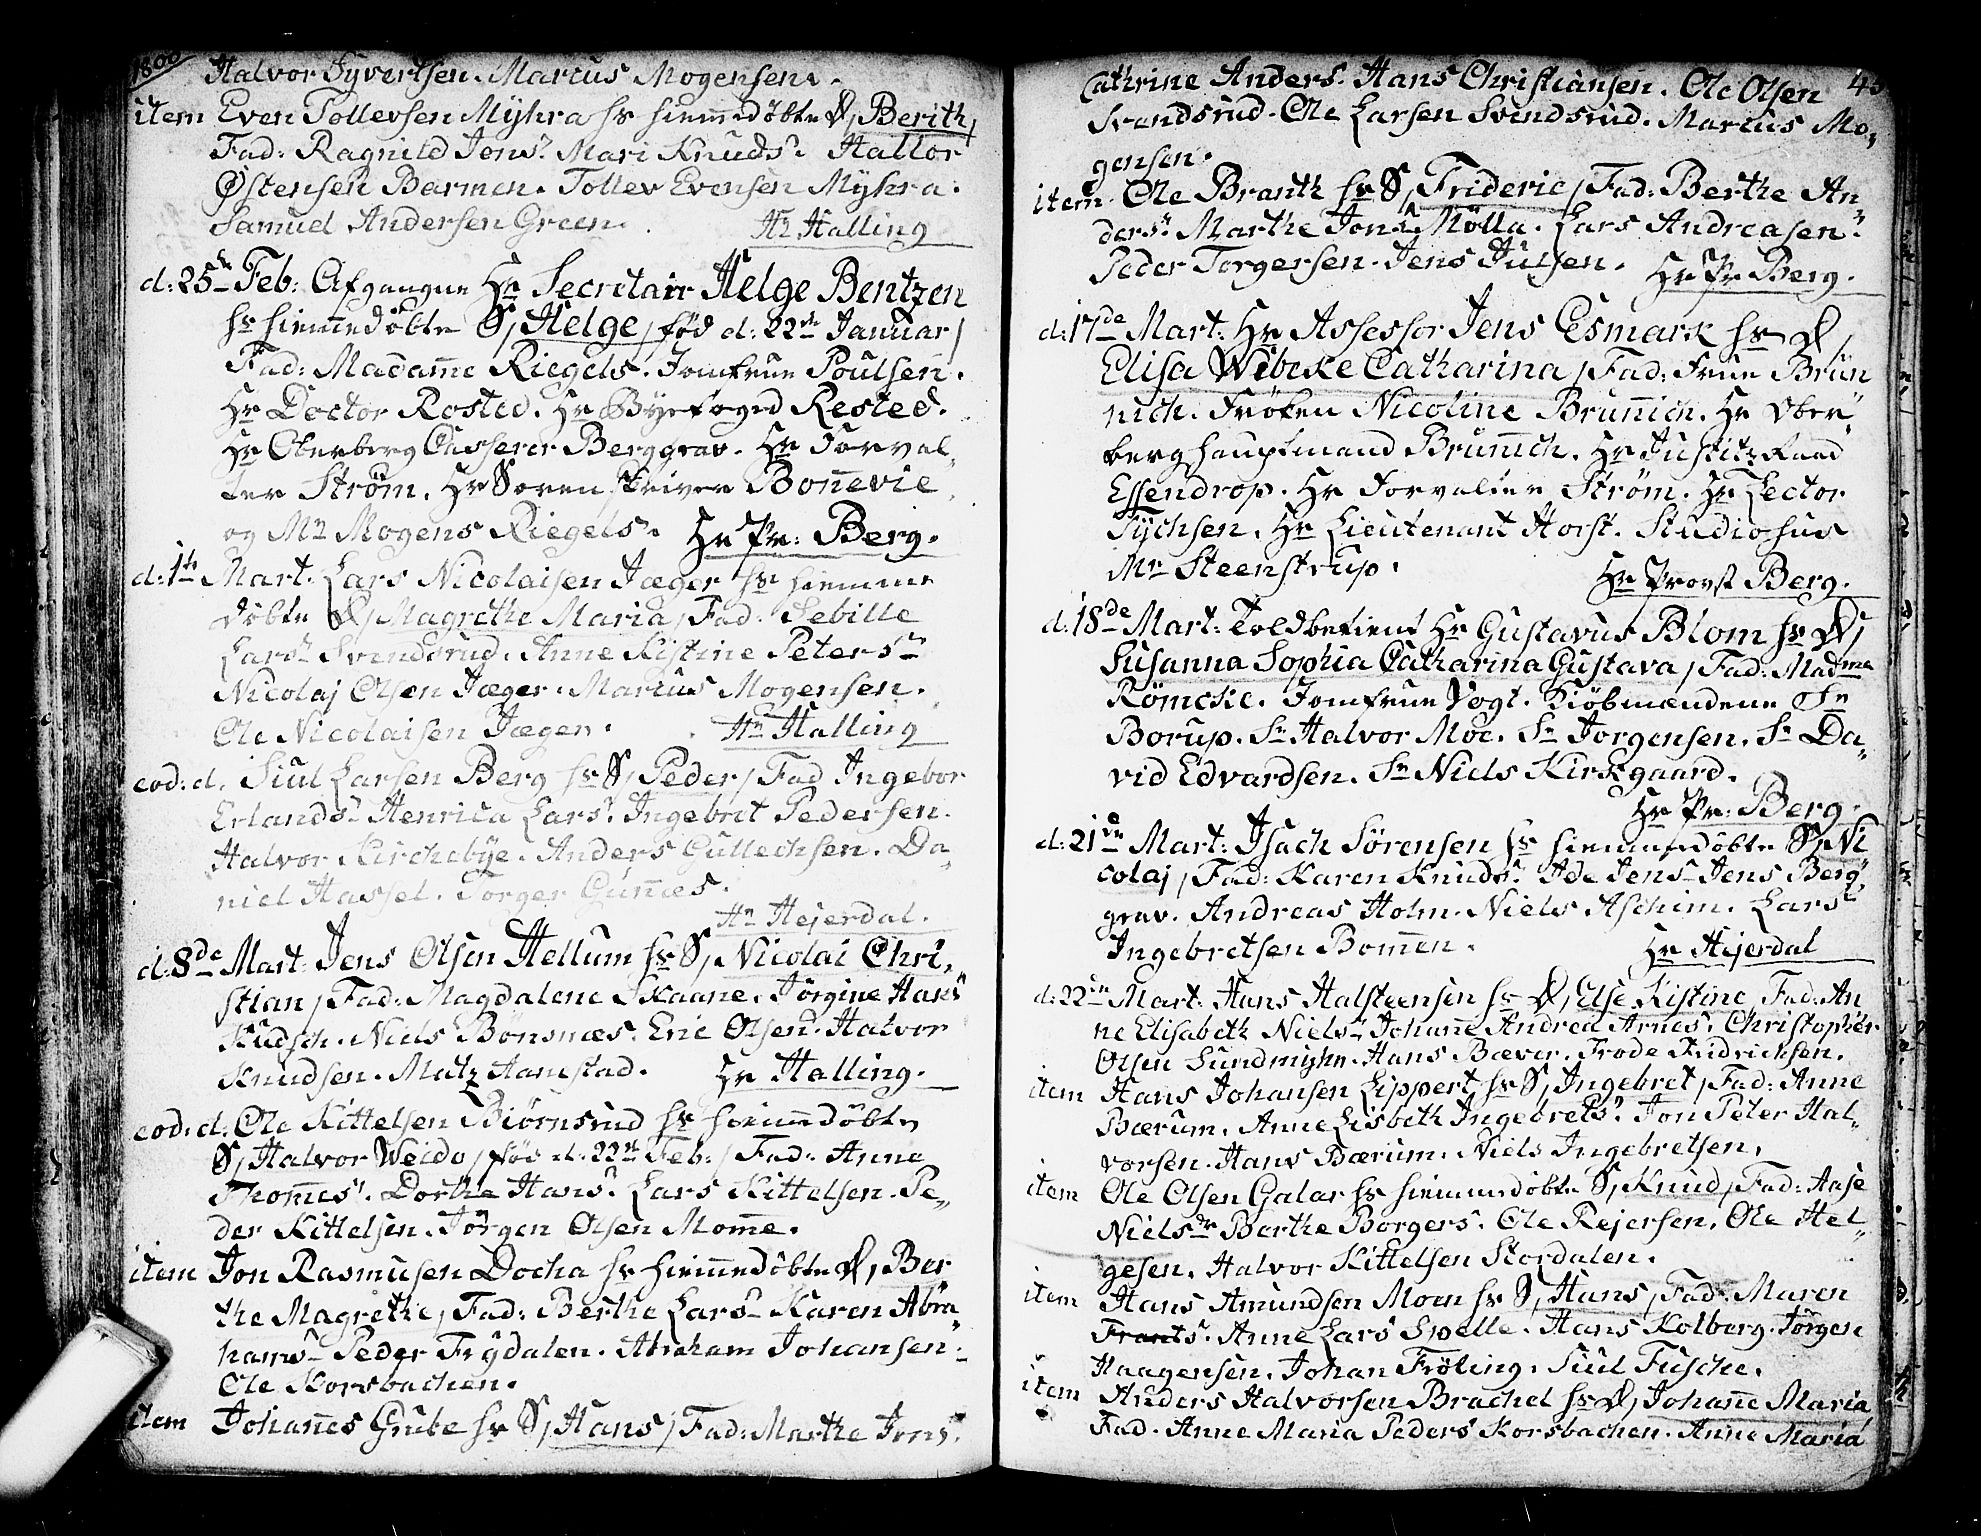 1800
Halvor Iyvertsen. Marcus Mogensen.
item Even Tollevsen Myhra hs hiemedøbte D, Berith,
Fad: Ragnild Jens. Mari Knuds. Hallor
Østensen Barmen. Tollev Evensen Myhra.
Samuel Andersen Green. Hr Halling
d: 25de Feb: Afgangne Hr Secretair Helge Bentzen
hs hiemedøbte S, Helge, fød d: 22de Januar,
Fad: Madame Riegels. Jomfrue Poulsen.
Hr Doctor Rosted. Hr Byefoged Rested.
Hr Oberberg Casserer Berggrav. Hr Forval„
ter Ström. Hr Sorenskriver Bonevie
og Mr Mogens Riegels. Hr Pr: Berg.
d: 1te Mart. Lars Nicolaisen Jæger hs hiemme
døbte D, Magrethe Maria, Fad: Sebille
Larsr Svendsrud. Anne Kistine Petersr
Nicolaj Olsen Jæger. Marcus Mogensen.
Ole Nicolaisen Jæger. Hr Halling
eod: d. Siul Larsen Berg hs S, Peder, Fad Ingebor
Erlandsr Henrica Larsr Ingebret Pedersen.
Halvor Kirchebye. Anders Gullechsen. Da„
niel Hassel. Torger Gunnes.
Hr Hejerdal.
d: 8de Mart: Jens Olsen Hellum hs S, Nicolai Chri„
stian, Fad: Magdalene Skaane. Jørgine Hans
Kudsch. Niels Bönsnæs. Eric Olsen. Halvor
Knudsen. Matz Hamstad. Hr Halling.
eod: d: Ole Kittelsen Biörnsrud hs hiemedøbte
S, Halvor Weido, fød d: 22de Feb:, Fad: Anne
Thomes. Dorthe Hans. Lars Kittelsen. Pe„
der Kittelsen. Jörgen Olsen Momme.
item Jon Rasmusen Docha hs hiemedøbte D, Ber
the Magrethe, Fad: Berthe Larsr Karen Abra„
hams Peder Frydalen. Abraham Johansen.
Ole Korsbachen.
item Johannes Grube hs S, Hans, Fad: Marthe Jens.
Cathrine Anders. Hans Christiansen. Ole Olsen
Svendsrud. Ole Larsen Svendsrud. Marcus Mo„
gensen.
item Ole Branth hs S, Frideric, Fad: Berthe An„
ders. Marthe Jons Mölla. Lars Andreasen.
Peder Torgersen. Jens Julsen. Hr Pr Berg.
d: 17de Mart: Hr Assessor Jens Esmark hs D,
Elisa Wibeke Catharina, Fad: Frue Brün
nich. Frøken Nicoline Brunnich. Hr Ober„
berghauptmand Brunnich. Hr Justitz Raad
Essendrop. Hr Forvalter Strøm. Hr Lector
Tychsen. Hr Lieutenant Horst. Studiosus
Mr Steenstrup. Hr Provst Berg.
d: 18de Mart: Toldbetient Hr Gustavus Blom hs D,
Susanna Sophia Catharina Gustava, Fad: Madme
Römcke. Jomfrue Vogt. Kiöbmændene Sr
Borup. Sr Halvor Moe. Sr Jorgensen. Sr Da„
vid Edvardsen. Sr Niels Kirkgaard.
Hr Pr: Berg.
d: 21de Mart: Isach Sörensen hs hiemmedøbte S, Ni
colaj, Fad: Karen Knuds. Ide Jens Jens Berg„
grav. Andreas Holm. Niels Aschim. Lars
Ingebretsen Bomen. Hr Hejerdal
d: 22de Mart: Hans Halsteensen hs D, Else Kistine, Fad: An
ne Elisabeth Niels. Johanne Andrea Arnes. Christopher
Olsen Sundmyhr. Hans Bæver. Frode Fridrichsen.
item Hans Johansen Lippert hs S, Ingebret, Fad: Anne
Bærum. Anne Lisbeth Ingebrets. Jon Peter Hal„
vorsen. Hans Bærum. Niels Ingebretsen.
item Ole Olsen Galar hs hiemmedøbte S, Knud, Fad: Aase
Nielsdr Berthe Borgers. Ole Rejersen. Ole Hel„
gesen. Halvor Kittelsen Stordalen.
item Hans Amundsen Moen hs S, Hans, Fad: Maren
Frants. Anne Lars Spelle. Hans Kolberg. Jörgen
Haagensen. Johan Fröling. Siul Fusche.
item Anders Halvorsen Brachel hs D, Johanne Maria
Fad. Anne Maria Peders Korsbachen. Anne Maria